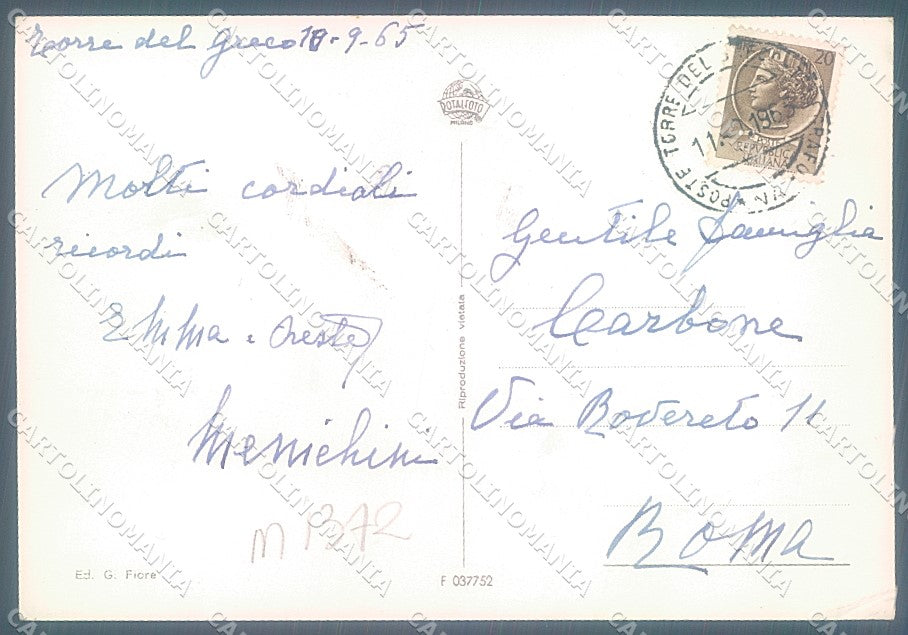 Torre del Greco 18-9-65
Molti cordiali
ricordi
Emma e Oreste
Menichini
m 1372
Ed. G. Fiore
ROTALFOTO
MILANO
Riproduzione vietata
F 037752
20
REPUBBLICA
ITALIANA
POSTE TORRE DEL
Gentile Famiglia
Carbone
Via Rovereto 11
ROMA
CARTOLINOMANIA